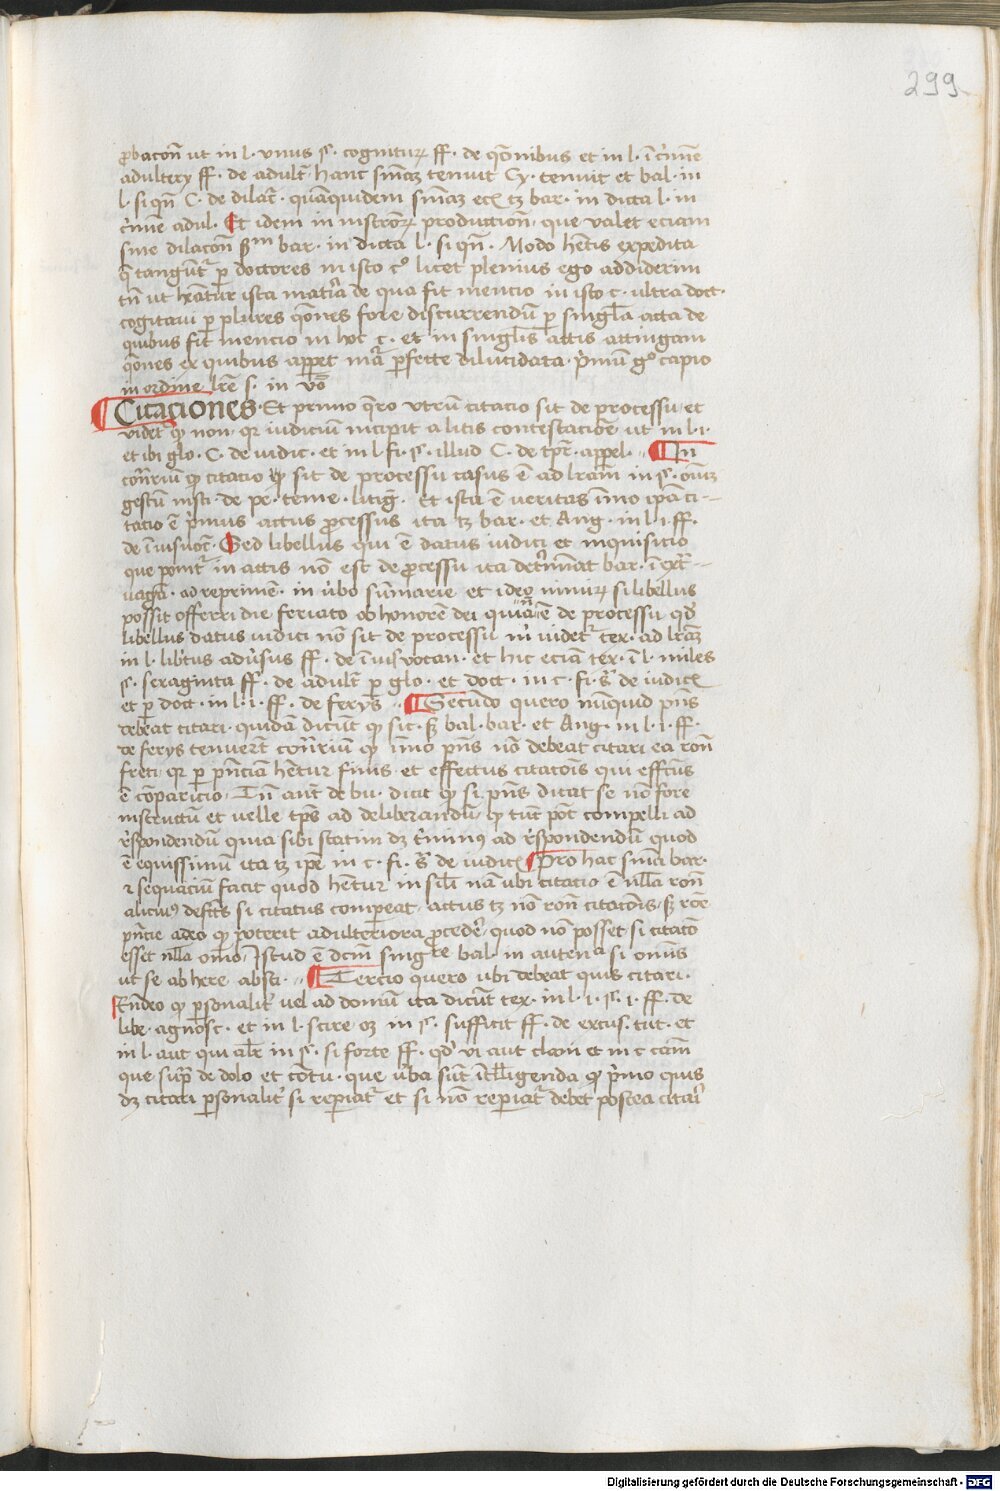 299
ꝓbacōn̄ ut in l. vnus §. cognituꝝ ff. de q̄onibus et in l. ī c̓imīe
adultery ff. de adult̄. hanc sn̄iaꝫ tenuit Cy. tenuit et bal. in
l. si qn̄ C. de dilac̄. quāquidem sn̄iaꝫ ec̄ tꝫ bar. in dicta l. in
c̓imīe adul. Et idem in instr̄oꝝ production̄. que valet eciam
sine dilacōn̄ sm bar. in dicta l. si qn̄. Modo hētis expedita
q̄ tangūt̄ ꝑ doctores in isto c̊ licet plenius ego addiderim
tn̄ ut hēatur ista mat̓ia de qua fit mencio in isto c. ultra doct.
cogitaui ꝑ plures q̄ones fore discurrendū ꝑ singl̄a acta de
quibus fit mencio in hoc c. et in singl̄is actis attingam
q̄ones ex quibus appet mā ꝑfecte dilucidata. p̓imū g̊ capio
in ordine lr̄e s. in v̄o
Citaciones. Et primo q̄ro vtrū citacio sit de processu et
videt̄ ꝙ non. qr iudiciū incipit a litis contestacione ut in l. i.
et ibi glo. C. de iudic. et in l. fi. §. illud C. de tp̄r. appel. In
cōtr̄iū ꝙ citacio sit de processu casus ē ad lr̄am in §. oīuꝫ
gestū insti. de pe. teme. litiḡ. et ista ē veritas īmo ip̄a ci-
tacio ē p̓imus actus ꝓcessus ita tꝫ bar. et Ang. in l. i. ff.
de ī ius uoc̄. Sed libellus qui ē datus iudici et inquisicio
que ponit̄ in actis nō est de ꝓcessu ita det̓minat bar. ī ext̄ra-
uagā. ad reprimē. in ūbo sūmarie et ideo si libellus
possit offerri die feriato ob honorē dei quia nō ē de processu qd̓
libellus datus iudici nō sit de processu videt̄ tex. ad lr̄aꝫ
in l. lib̓tus adū̓sus ff. de ī ius vocan. et hic eciā tex. ī l. miles
§. sexaginta ff. de adult̄ ꝑ glo. et doct. in c. fi. de iudic̄
et ꝑ doct. in l. i. ff. de feryˢ. Secundo quero nūquid pn̄s
debeat citari. quidā dicūt ꝙ sic. sꝫ bal. bar. et Ang. in l. i. ff.
de ferys tenuer̄t cōtr̄iū ꝙ īmo pn̄s nō debeat citari ea rōn
freti. qr ꝑ pn̄ciā hētur finis et effectus citacōis qui effcūs
ē cōparicio. Tn̄ ant̄. de bu. dicit ꝙ si pn̄s dicat se nō fore
instructū et uelle tp̄s ad deliberandū. ꝙ tūc pōt compelli ad
r̓spondendū quia sibi statim dꝫ t̓minꝰ ad r̓spondendū quod
ē equissimū ita tꝫ ip̄e in c. fi. de iudic̄ Pro hac sn̄ia bar.
⁊ sequaciū facit quod hētur in sil̄i nā ubi citacio ē nll̄a rōn
alicuiꝰ defcūs si citatus compeat. actus tꝫ nō rōn citacōis. sꝫ rōe
pn̄cie adeo ꝙ poterit ad ulteriora ꝓcedere. quod nō posset si citacō
esset nll̄a oīno. Istud ē dcm̄ singre bal. in auten̄ca si omēs
ut se ab here. absti. Tercio quero ubi debeat quis citari.
Rn̄deo ꝙ ꝑsonalit̓ vel ad domū ita dicūt tex. in l. i. §. i. ff. de
libe. agnosc. et in l. scire oꝫ in §. sufficit ff. de excus. tut. et
in l. aut qui alr̄ in §. si forte ff. qd̓ vi aut clam et in c cām
que sup̄ de dolo et cōtu. que ūba sūt ītelligenda ꝙ p̓imo quis
dꝫ citari ꝑsonalit̓ si repiat̄ et si nō repiat̄ debet postea citari
Digitalisierung gefördert durch die Deutsche Forschungsgemeinschaft - DFG